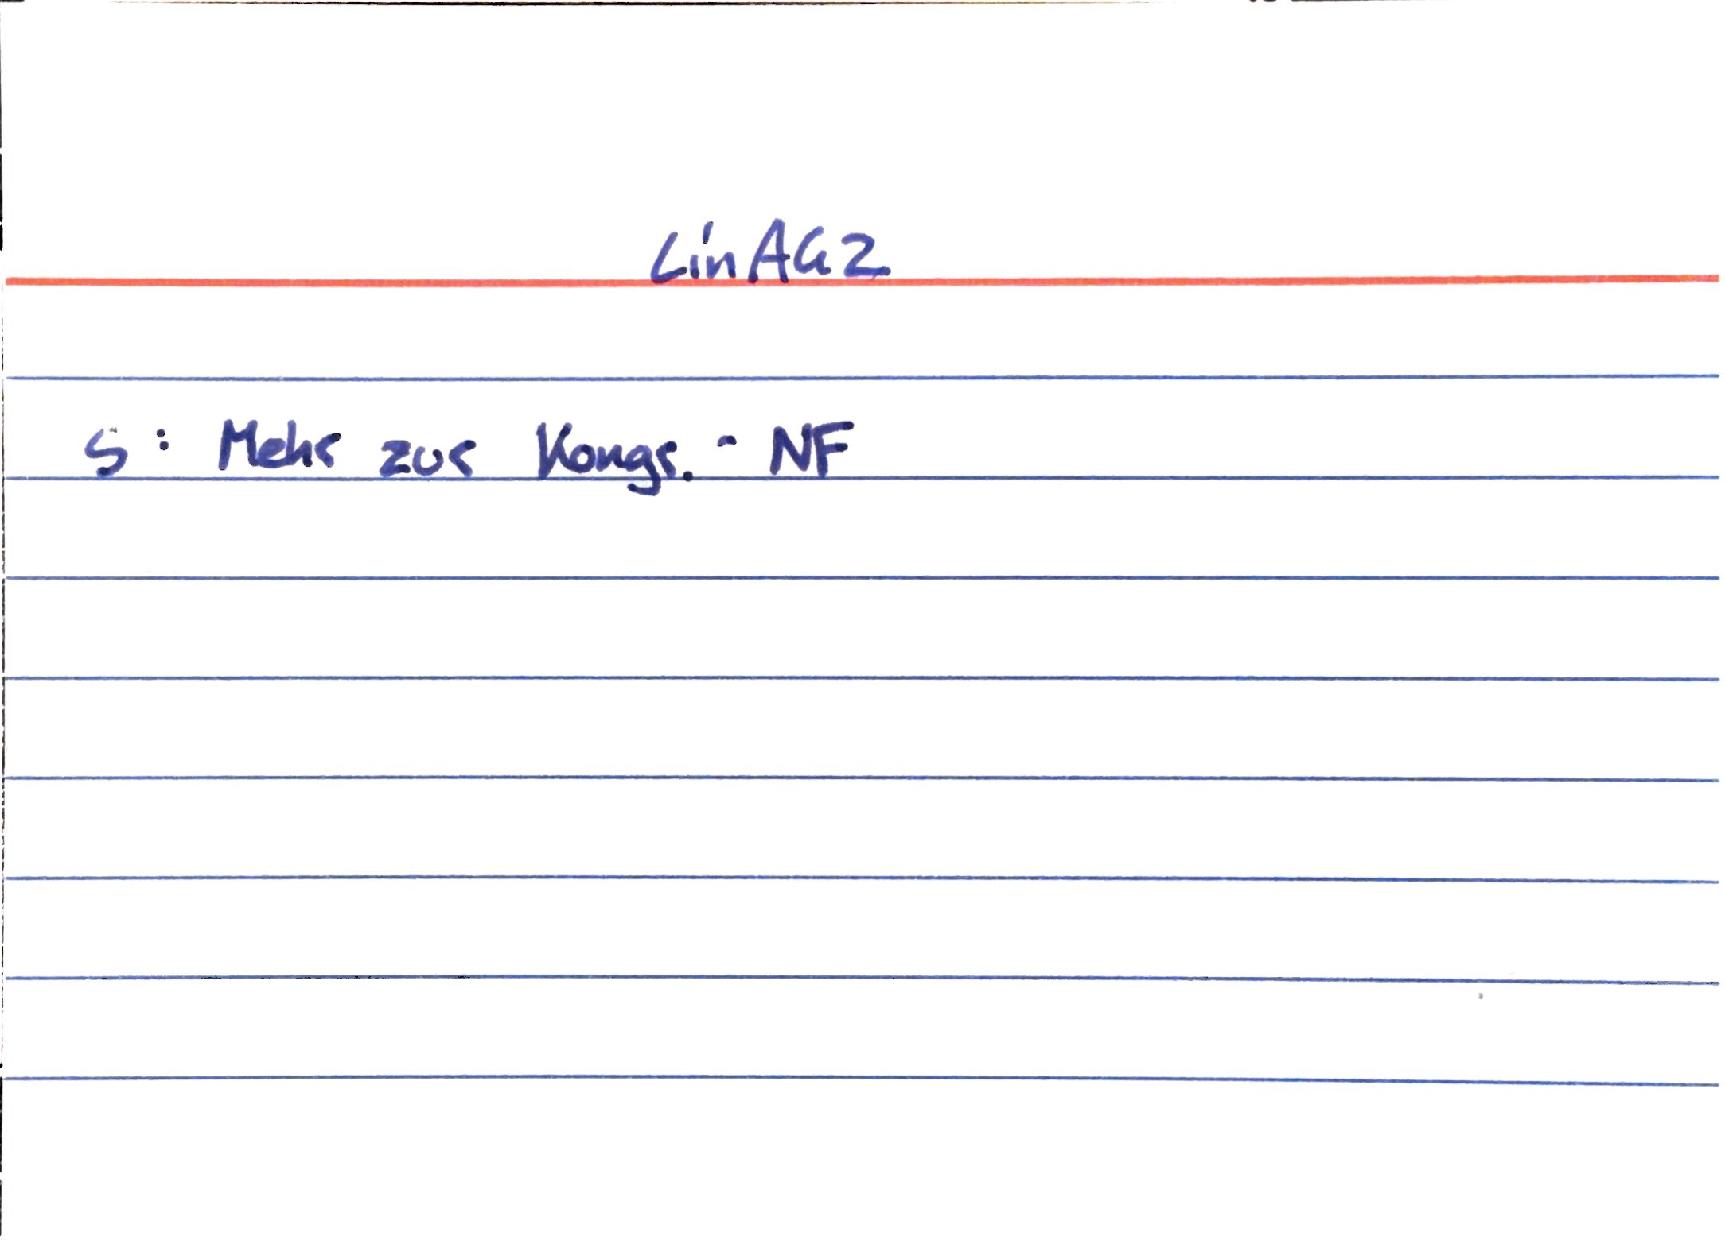 LinAG2
S: Mehr zur Kongr.-NF